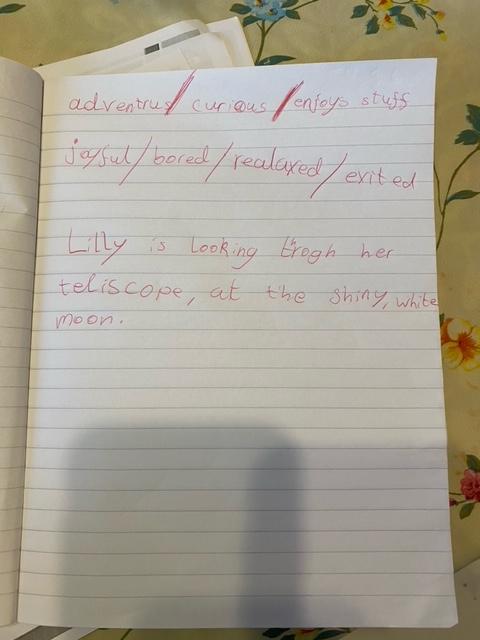 adventrus/ curious /enjoys stuff
joyful/bored/realaxed/exited
Lilly is looking trogh her
teliscope, at the shiny, white
moon.